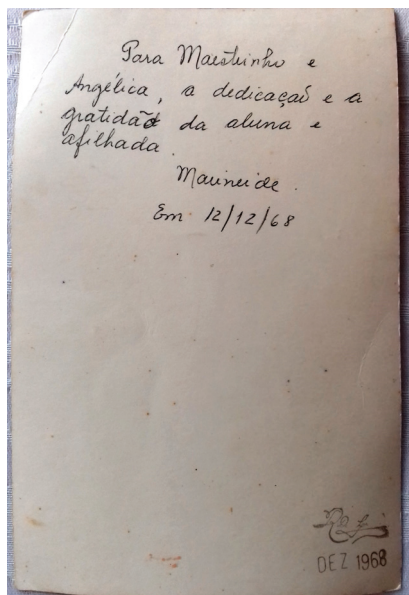 Para Maestrinho e
Angélica, a dedicação e a
gratidão da aluna e
afilhada.
Maurineide.
Em 12/12/68
DEZ 1968